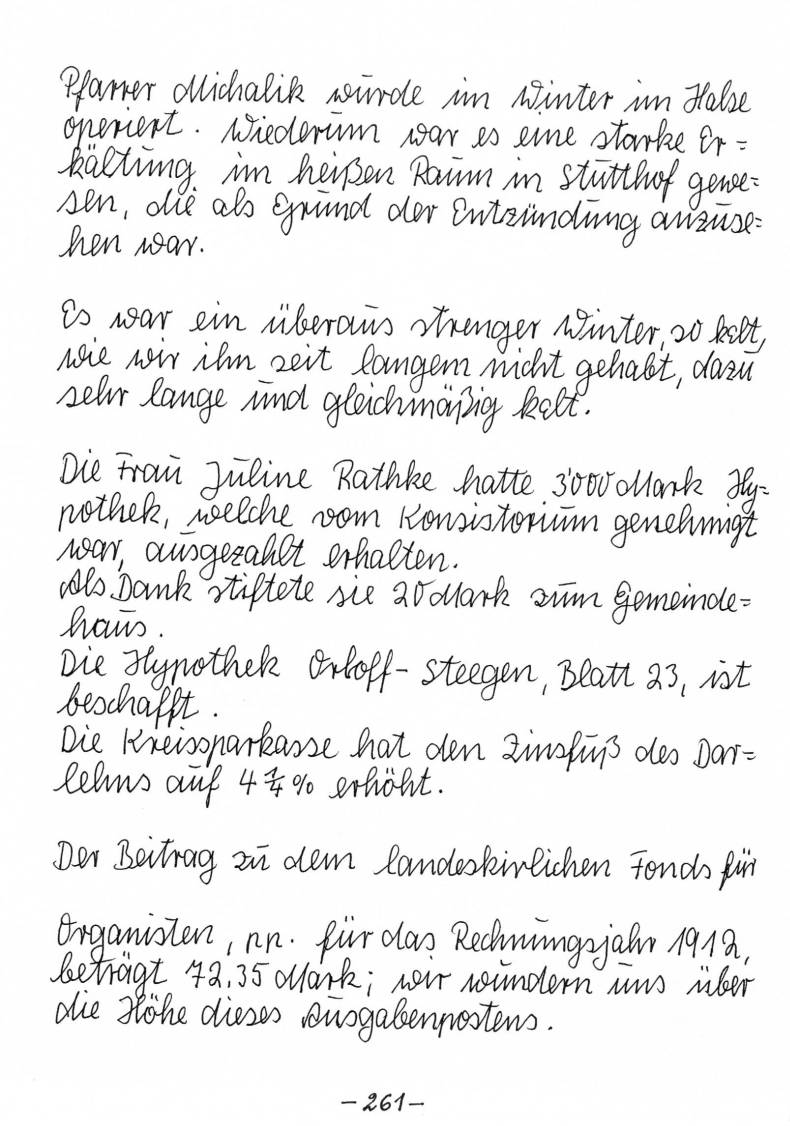 Pfarrer Michalik wurde im Winter im Halse
operiert. Wiederum war es eine starke Er=
kältung im heißen Raum in Stutthof gewe=
sen, die als Grund der Entzündung anzuse=
hen war.
Es war ein überaus strenger Winter, so kalt,
wie wir ihn seit langem nicht gehabt, dazu
sehr lange und gleichmäßig kalt.
Die Frau Juline Rathke hatte 3'000 Mark Hy=
pothek, welche vom Konsistorium genehmigt
war, ausgezahlt erhalten.
Als Dank stiftete sie 20 Mark zum Gemeinde=
haus.
Die Hypothek Orloff- Steegen, Blatt 23, ist
beschafft.
Die Kreissparkasse hat den Zinsfuß des Dar=
lehns auf 4 1/4 % erhöht.
Der Beitrag zu dem landeskirlichen Fonds für
Organisten, pp. für das Rechnungsjahr 1912,
beträgt 72,35 Mark; wir wundern uns über
die Höhe dieses Ausgabenpostens.
- 261 -